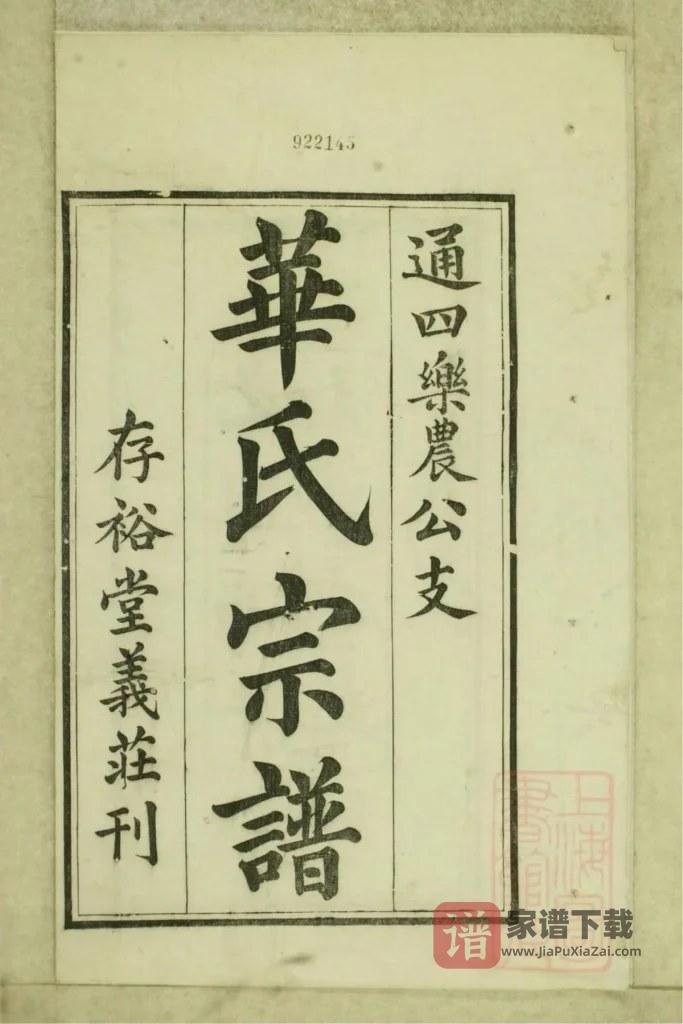 922145
通四樂農公支
華氏宗譜
存裕堂義莊刊
上海
書館
谱
家谱下载
www.JiaPuXiaZai.com